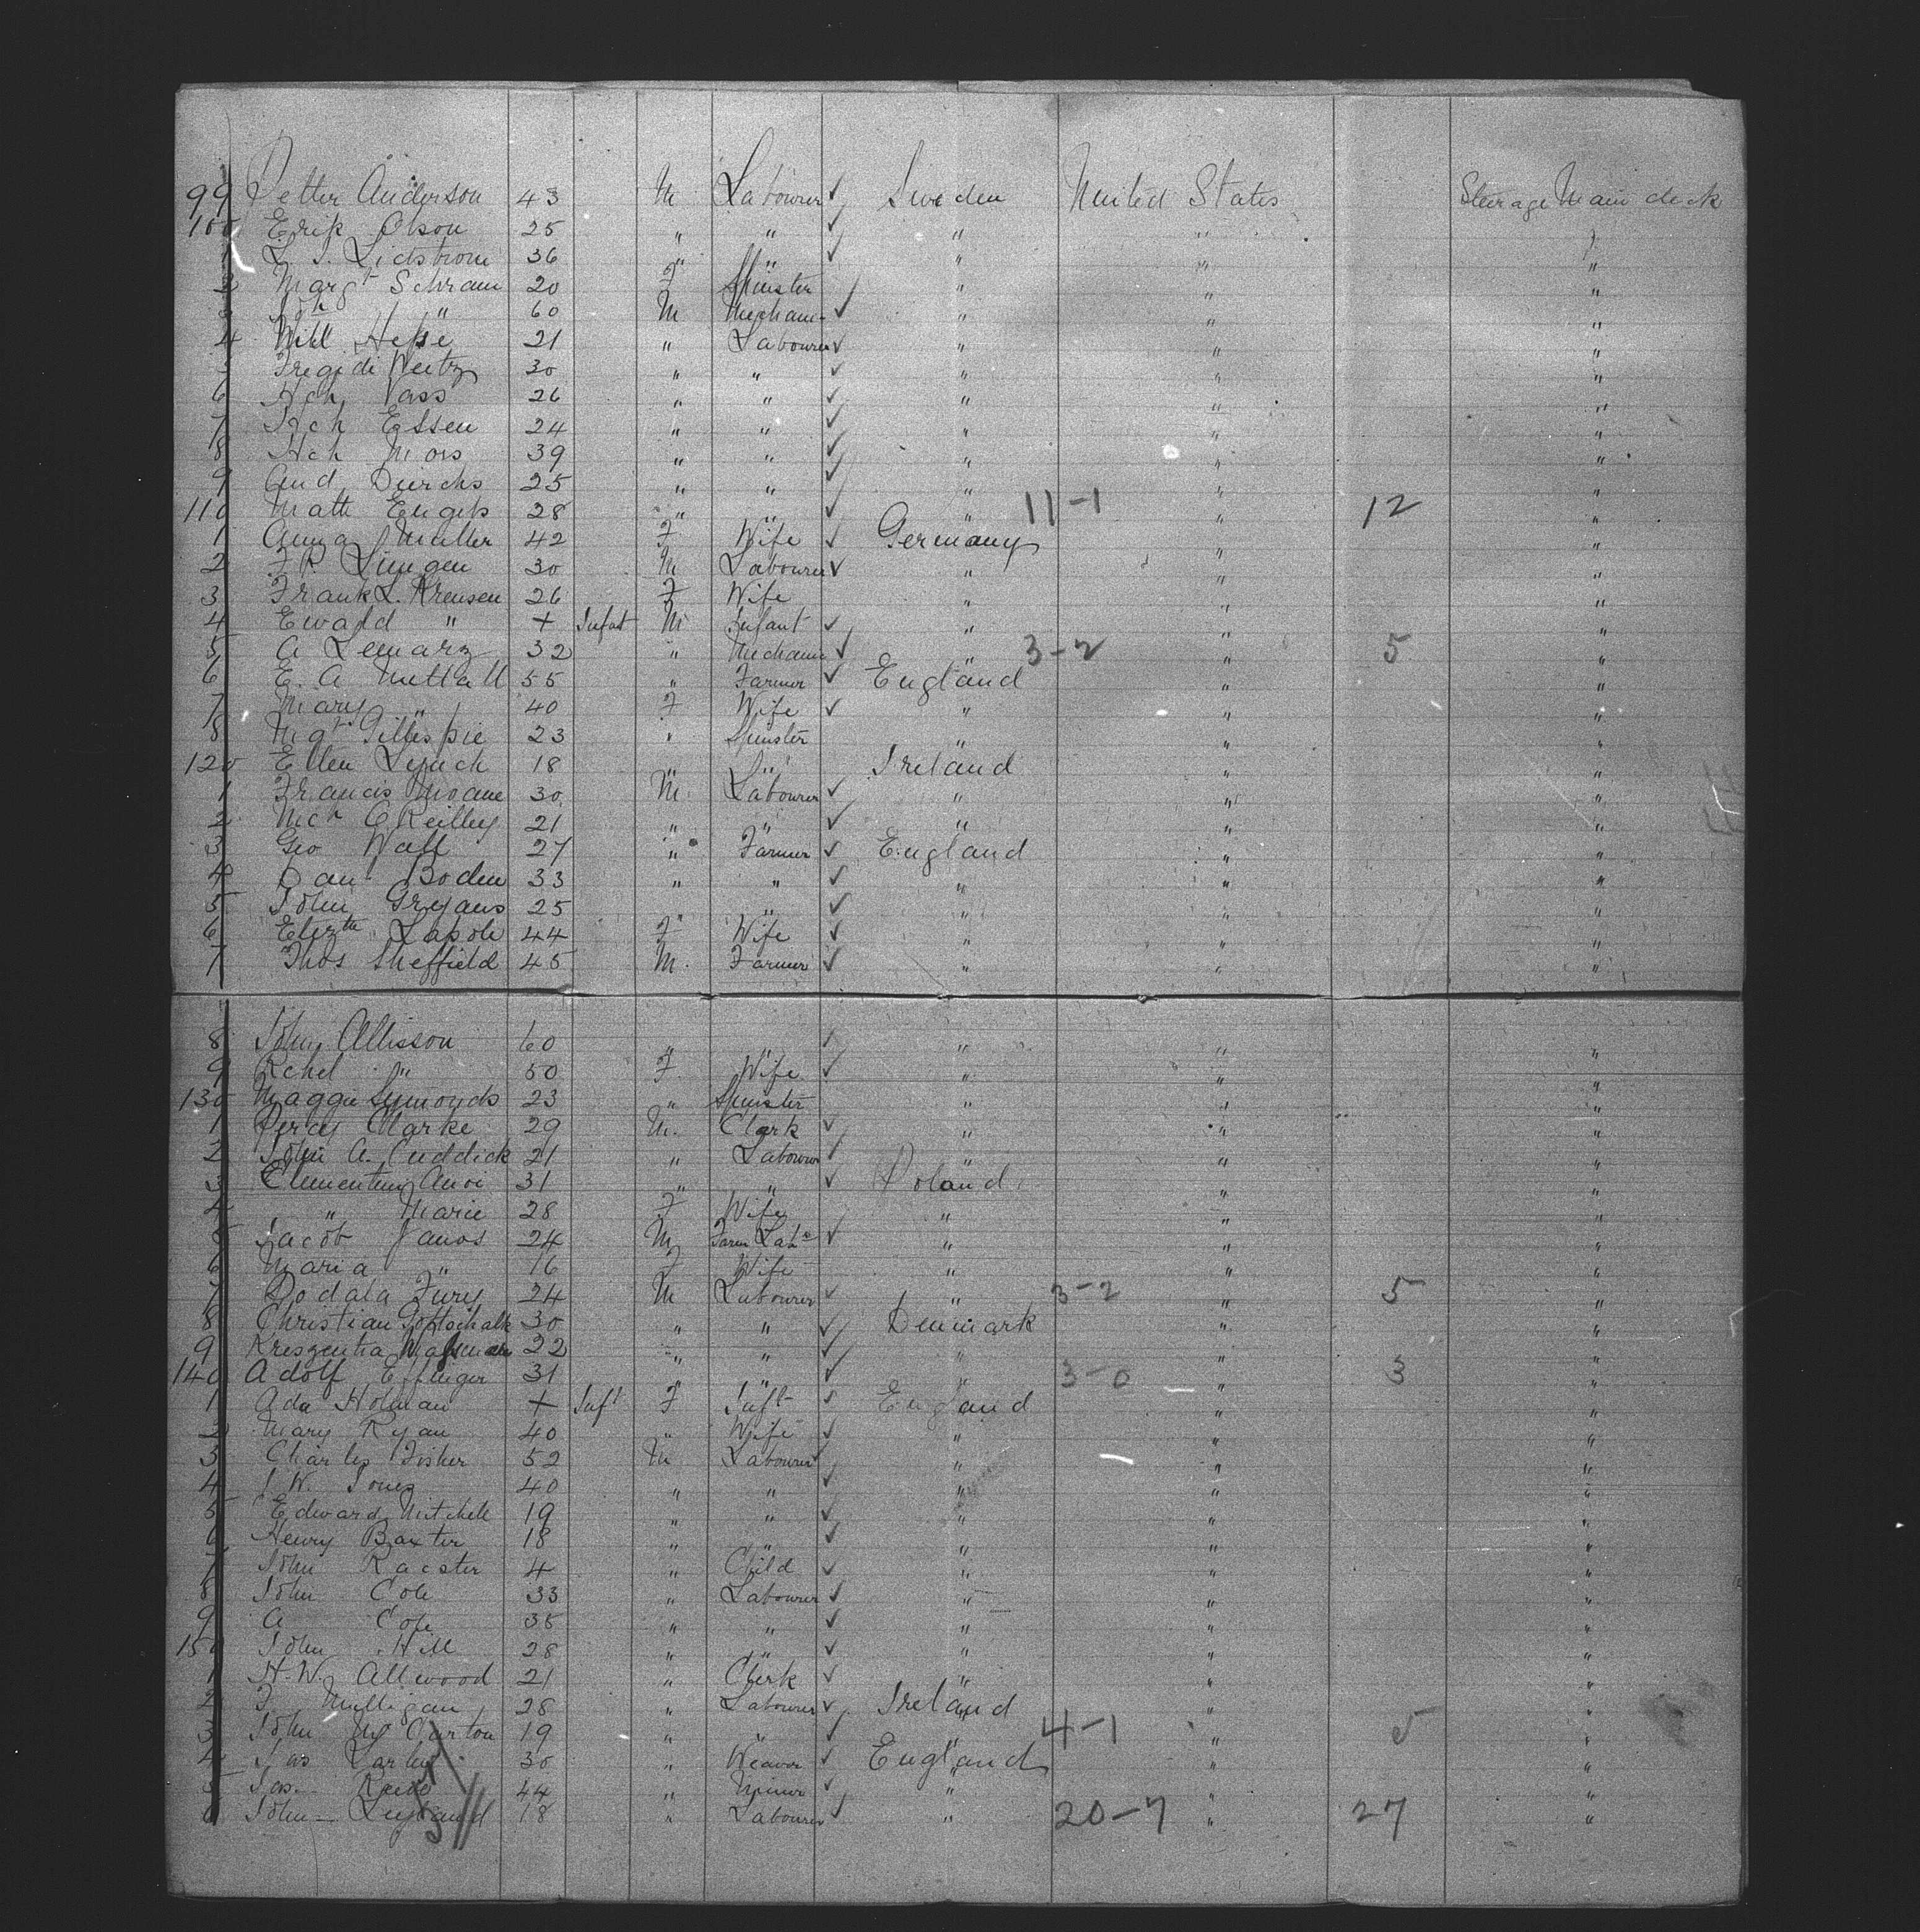 99 Petter Anderson 43 M Labourer Sweden United States Steerage Main deck
100 Erik Olson 25 " " " " "
1 L. J. Lidstrom 36 " " " " "
2 Margt Schram 20 F Spinster " " "
3 " 60 M Mechanic " " "
4 Will Hesse 21 " Labourer " " "
5 Weitz 30 " " " " "
6 Hch Vass 26 " " " " "
7 Hch Essen 24 " " " " "
8 Hch Mors 39 " " " " "
9 And Dierchs 25 " " " " "
110 Math Engels 28 " " " 11-1 " 12 "
1 Anna Muller 42 F Wife Germany " "
2 30 M Labourer " " "
3 Frank L. Krensen 26 F Wife " " "
4 Ewald " + Infat M Infant " " "
5 A Lemarz 32 " Mechanic " 3-2 " 5 "
6 E. A Nuttall 55 " Farmer England " "
7 Mary " 40 F Wife " " "
8 Mgt Gillespie 23 " Spinster " " "
120 Ellen Lynch 18 " " Ireland " "
1 Francis Moane 30 M. Labourer " " "
2 Mch O'Reilley 21 " " " " "
3 Geo Wall 27 " Farmer England " "
4 Danl Boden 33 " " " " "
5 John 25 " " " " "
6 Elizth 44 F Wife " " "
7 Thos Sheffield 45 M. Farmer " " "
8 John Allisson 60 " " " " "
9 Rchel " 50 F Wife " " "
130 Maggie Symonds 23 " Spinster " " "
1 Percy Clarke 29 M. Clerk " " "
2 John A. Cuddick 21 " Labourer " " "
3 31 " " Poland " "
4 " Marie 28 F Wife " " "
5 Jacob Janos 24 M Farm Labr " " "
6 Maria " 16 F Wife " " "
7 Dodala Fury 24 M Labourer " 3-2 " 5 "
8 Christian Gottschalk 30 " " Denmark " "
9 Kreszentia 22 " " " " "
140 Adolf Efflinger 31 " " " 3-0 " 3 "
1 Ada Holman + Inft F Inft England " "
2 Mary Ryan 40 " Wife " " "
3 Charles Fisher 52 M Labourer " " "
4 J. W. Jones 40 " " " " "
5 Edward Mitchell 19 " " " " "
6 Henry Baxter 18 " " " " "
7 John Racster 4 " Child " " "
8 John Cole 33 " Labourer " " "
9 A Cope 35 " " " " "
150 John Hill 28 " " " " "
1 H. W. Allwood 21 " Clerk " " "
2 F Mulligan 28 " Labourer Ireland " "
3 John McCarton 19 " " " 4-1 " 5 "
4 Jas 30 " Weaver England " "
5 Jas. 44 " Miner " " "
6 John Leyland 18 " Labourer " 20-7 " 27 "